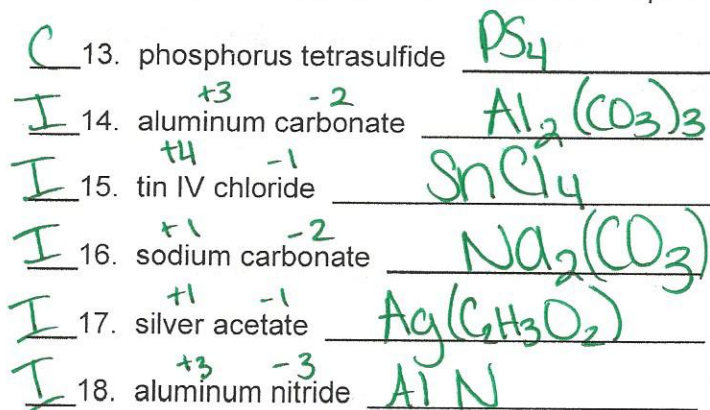 C 13. phosphorus tetrasulfide PS4
+3 -2
I 14. aluminum carbonate Al2(CO3)3
+4 -1
I 15. tin IV chloride SnCl4
+1 -2
I 16. sodium carbonate Na2(CO3)
+1 -1
I 17. silver acetate Ag(C2H3O2)
+3 -3
I 18. aluminum nitride AlN